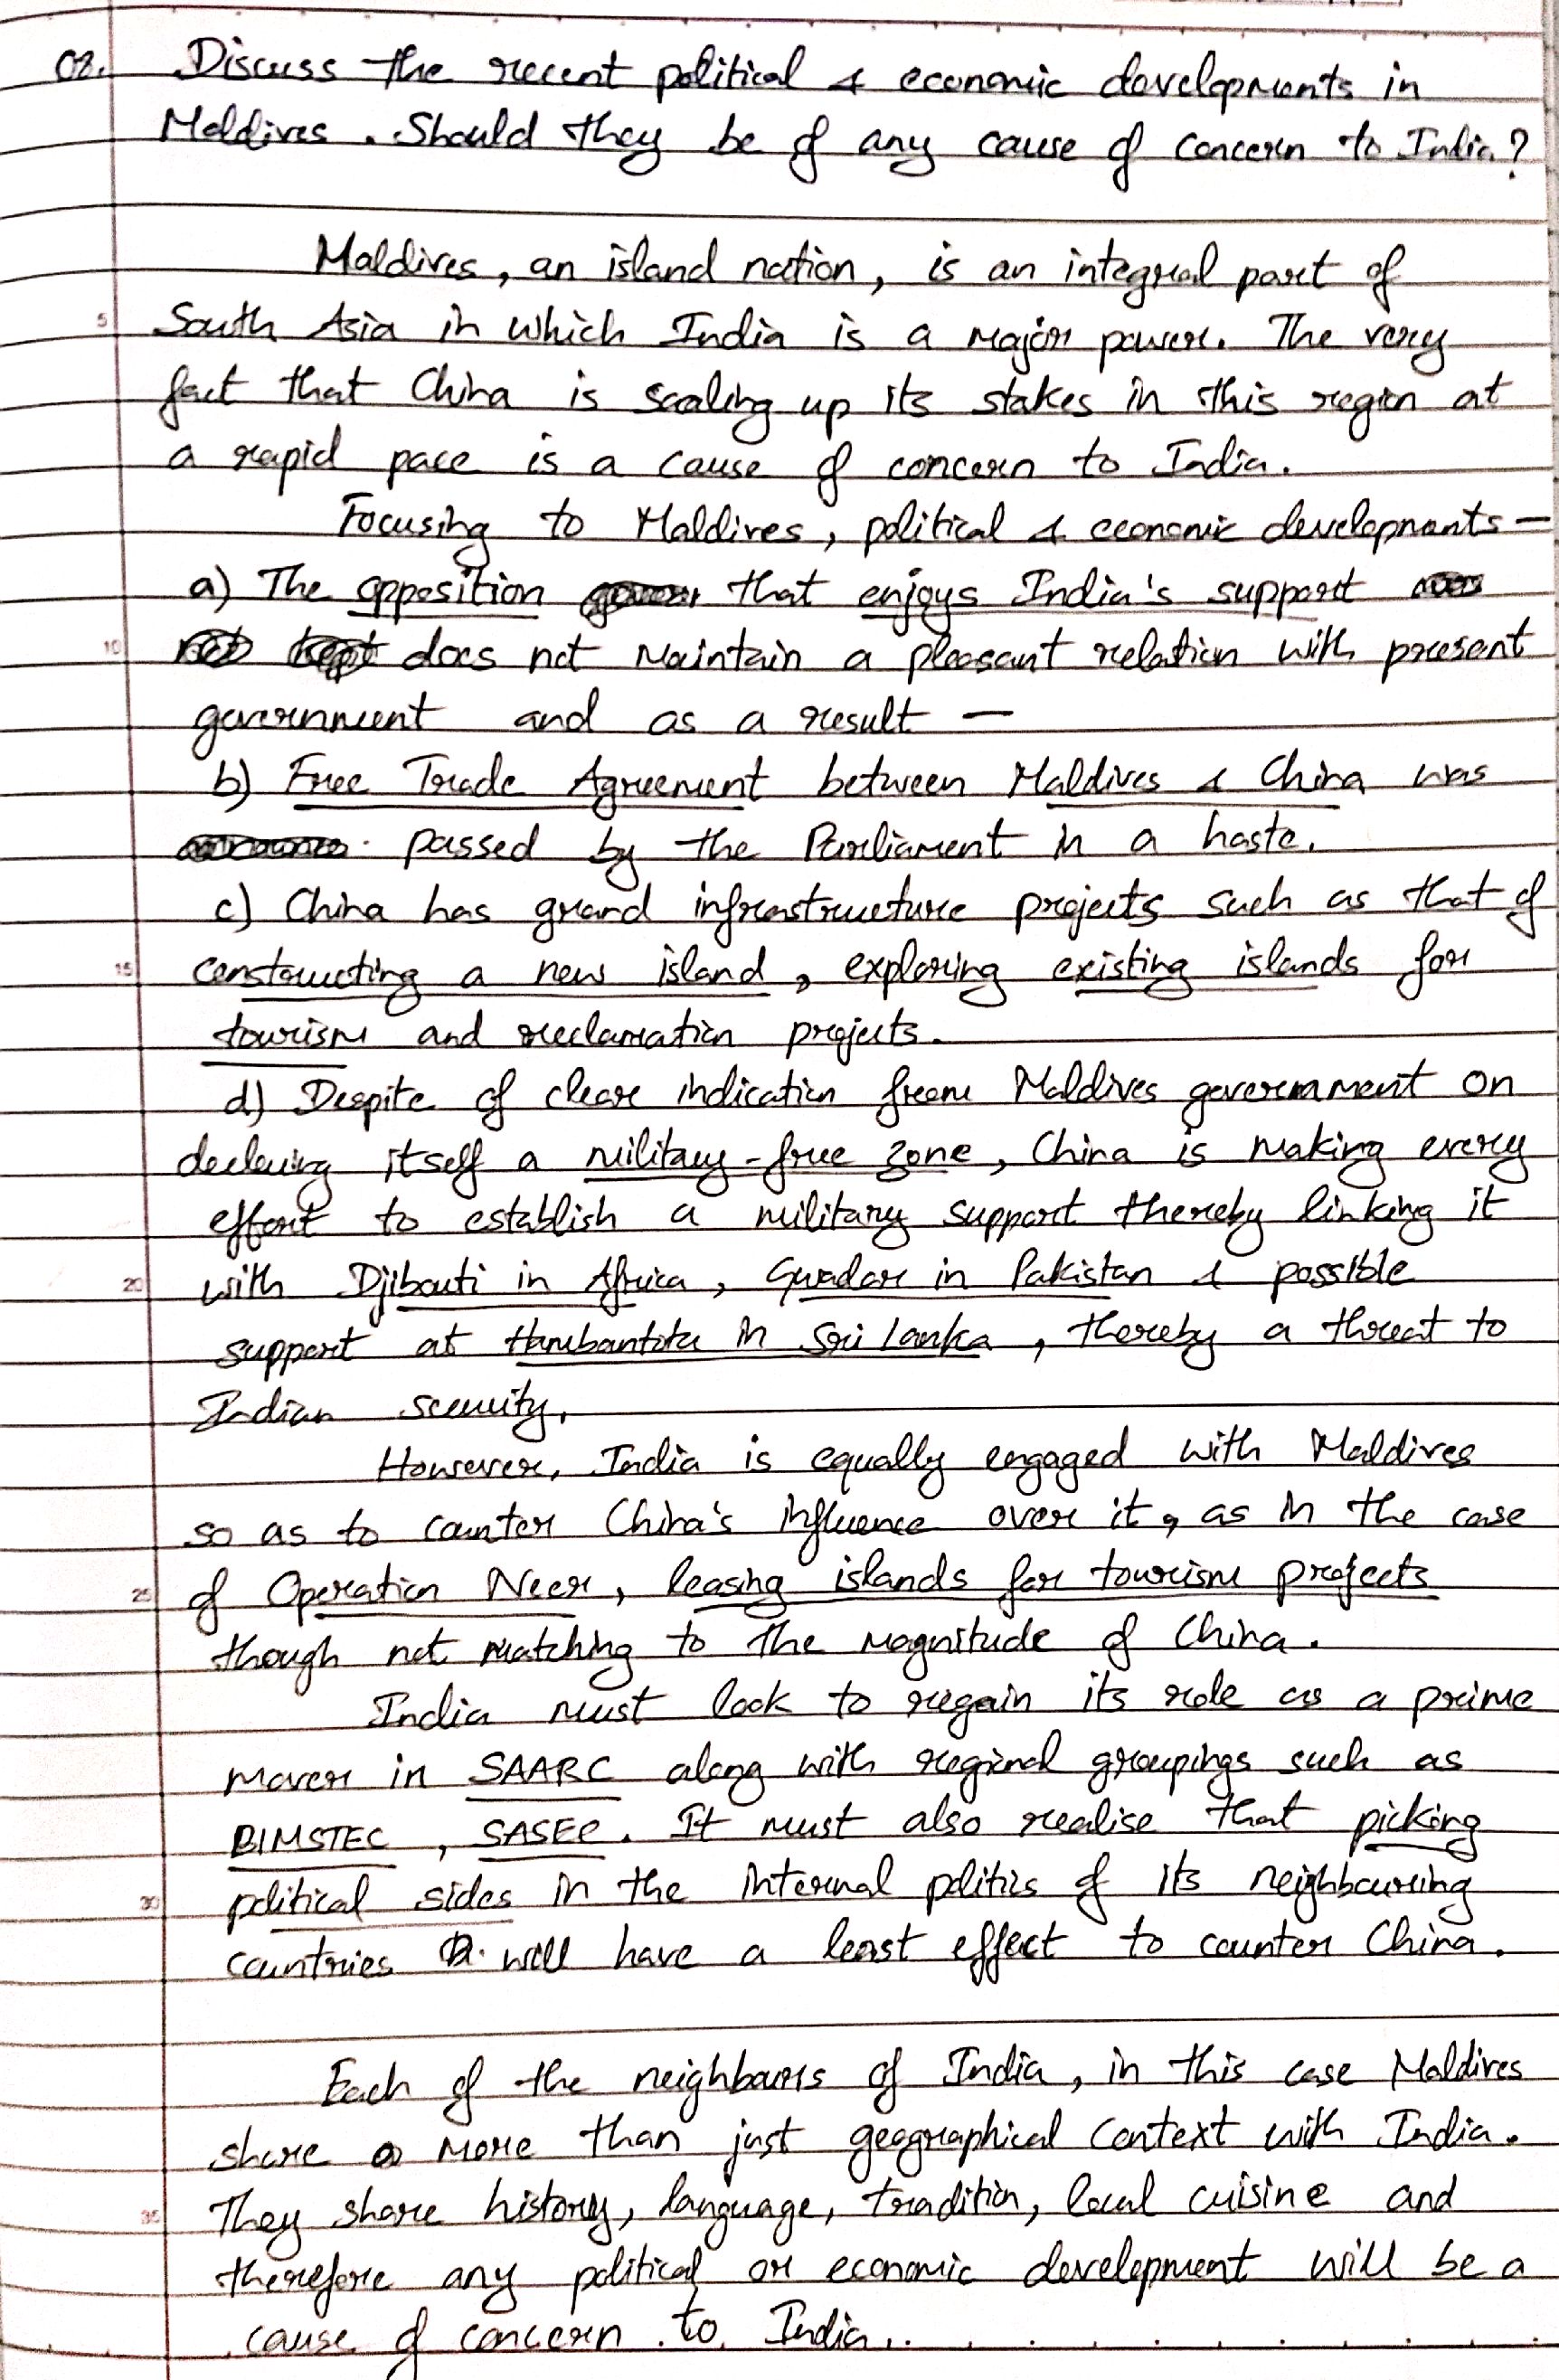 02. Discuss the recent political & economic developments in
Maldives. Should they be of any cause of concern to India?
Maldives, an island nation, is an integral part of
5 South Asia in which India is a major power. The very
fact that China is scaling up its stakes in this region at
a rapid pace is a cause of concern to India.
Focusing to Maldives, political & economic developments —
a) The opposition that enjoys India's support
10 does not maintain a pleasant relation with present
government and as a result —
b) Free Trade Agreement between Maldives & China was
passed by the Parliament in a haste.
c) China has grand infrastructure projects such as that of
15 constructing a new island, exploring existing islands for
tourism and reclamation projects.
d) Despite of clear indication from Maldives government on
declaring itself a military-free zone, China is making every
effort to establish a military support thereby linking it
20 with Djibouti in Africa, Gwadar in Pakistan & possible
support at Hambantota in Sri Lanka, thereby a threat to
Indian security.
However, India is equally engaged with Maldives
so as to counter China's influence over it, as in the case
25 of Operation Neer, leasing islands for tourism projects
though not matching to the magnitude of China.
India must look to regain its role as a prime
mover in SAARC along with regional groupings such as
BIMSTEC, SASEC. It must also realise that picking
30 political sides in the internal politics of its neighbouring
countries will have a least effect to counter China.
Each of the neighbours of India, in this case Maldives
share more than just geographical context with India.
35 They share history, language, tradition, local cuisine and
therefore any political or economic development will be a
cause of concern to India.